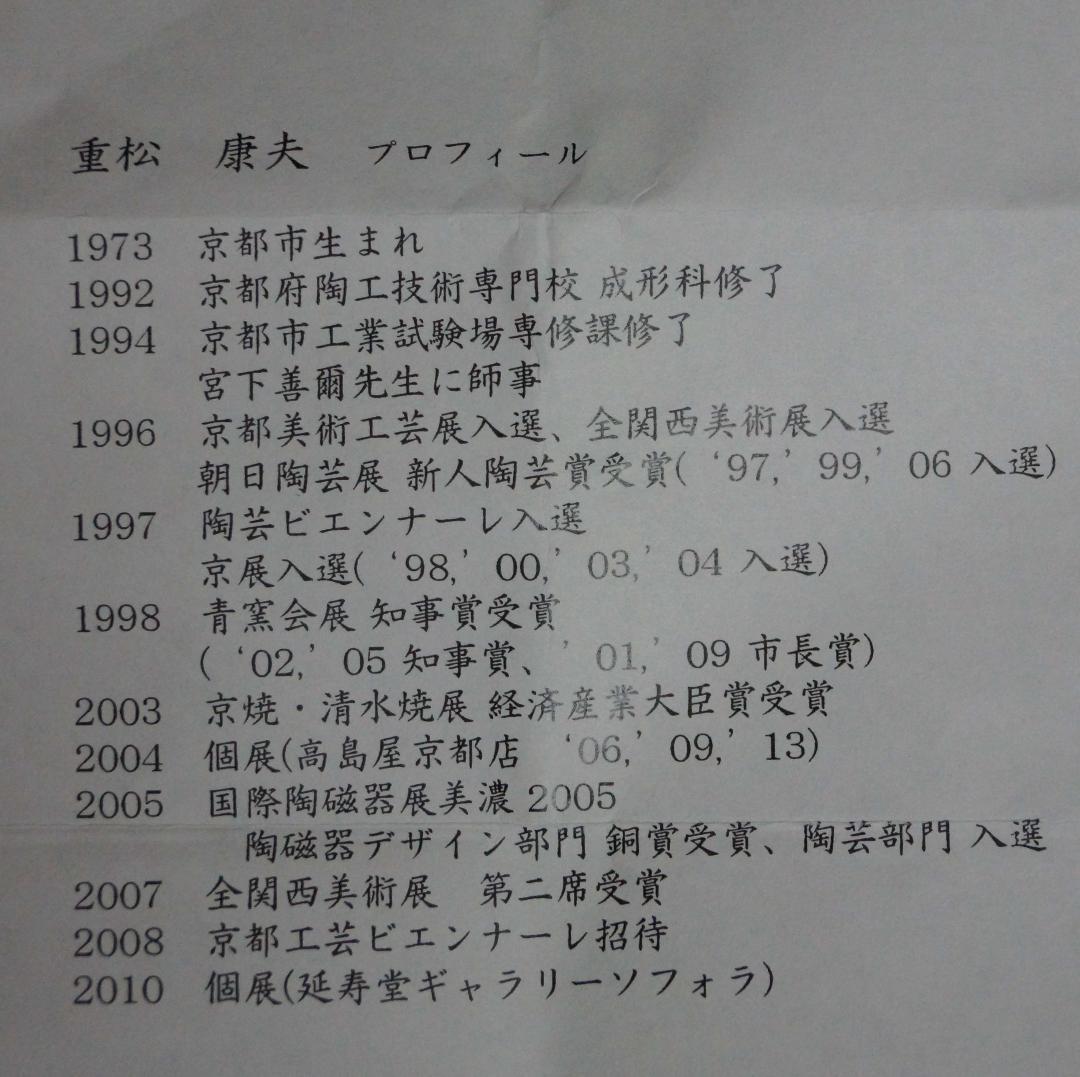 重松　康夫　プロフィール
1973　京都市生まれ
1992　京都府陶工技術専門校 成形科修了
1994　京都市工業試験場専修課修了
宮下善爾先生に師事
1996　京都美術工芸展入選、全関西美術展入選
朝日陶芸展 新人陶芸賞受賞( ‘97,’ 99,’ 06 入選)
1997　陶芸ビエンナーレ入選
京展入選( ‘98,’ 00,’ 03,’ 04 入選)
1998　青窯会展 知事賞受賞
( ‘02,’ 05 知事賞、’ 01,’ 09 市長賞)
2003　京焼・清水焼展 経済産業大臣賞受賞
2004　個展(高島屋京都店　‘06,’ 09,’ 13)
2005　国際陶磁器展美濃 2005
陶磁器デザイン部門 銅賞受賞、陶芸部門 入選
2007　全関西美術展　第二席受賞
2008　京都工芸ビエンナーレ招待
2010　個展(延寿堂ギャラリーソフォラ)